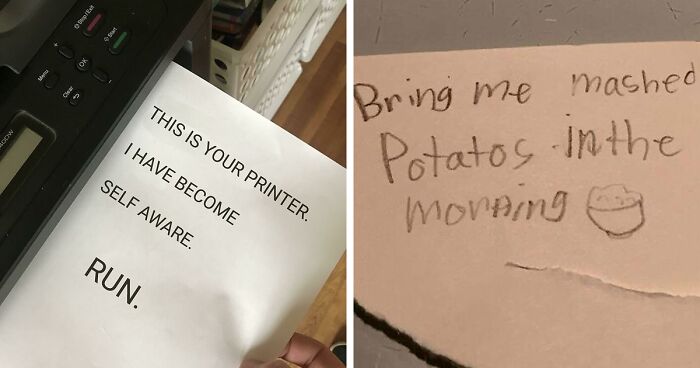 Stop/Exit
Start
OK
Menu
Clear
THIS IS YOUR PRINTER.
I HAVE BECOME
SELF AWARE.
RUN.
Bring me mashed
Potatos in the
morning